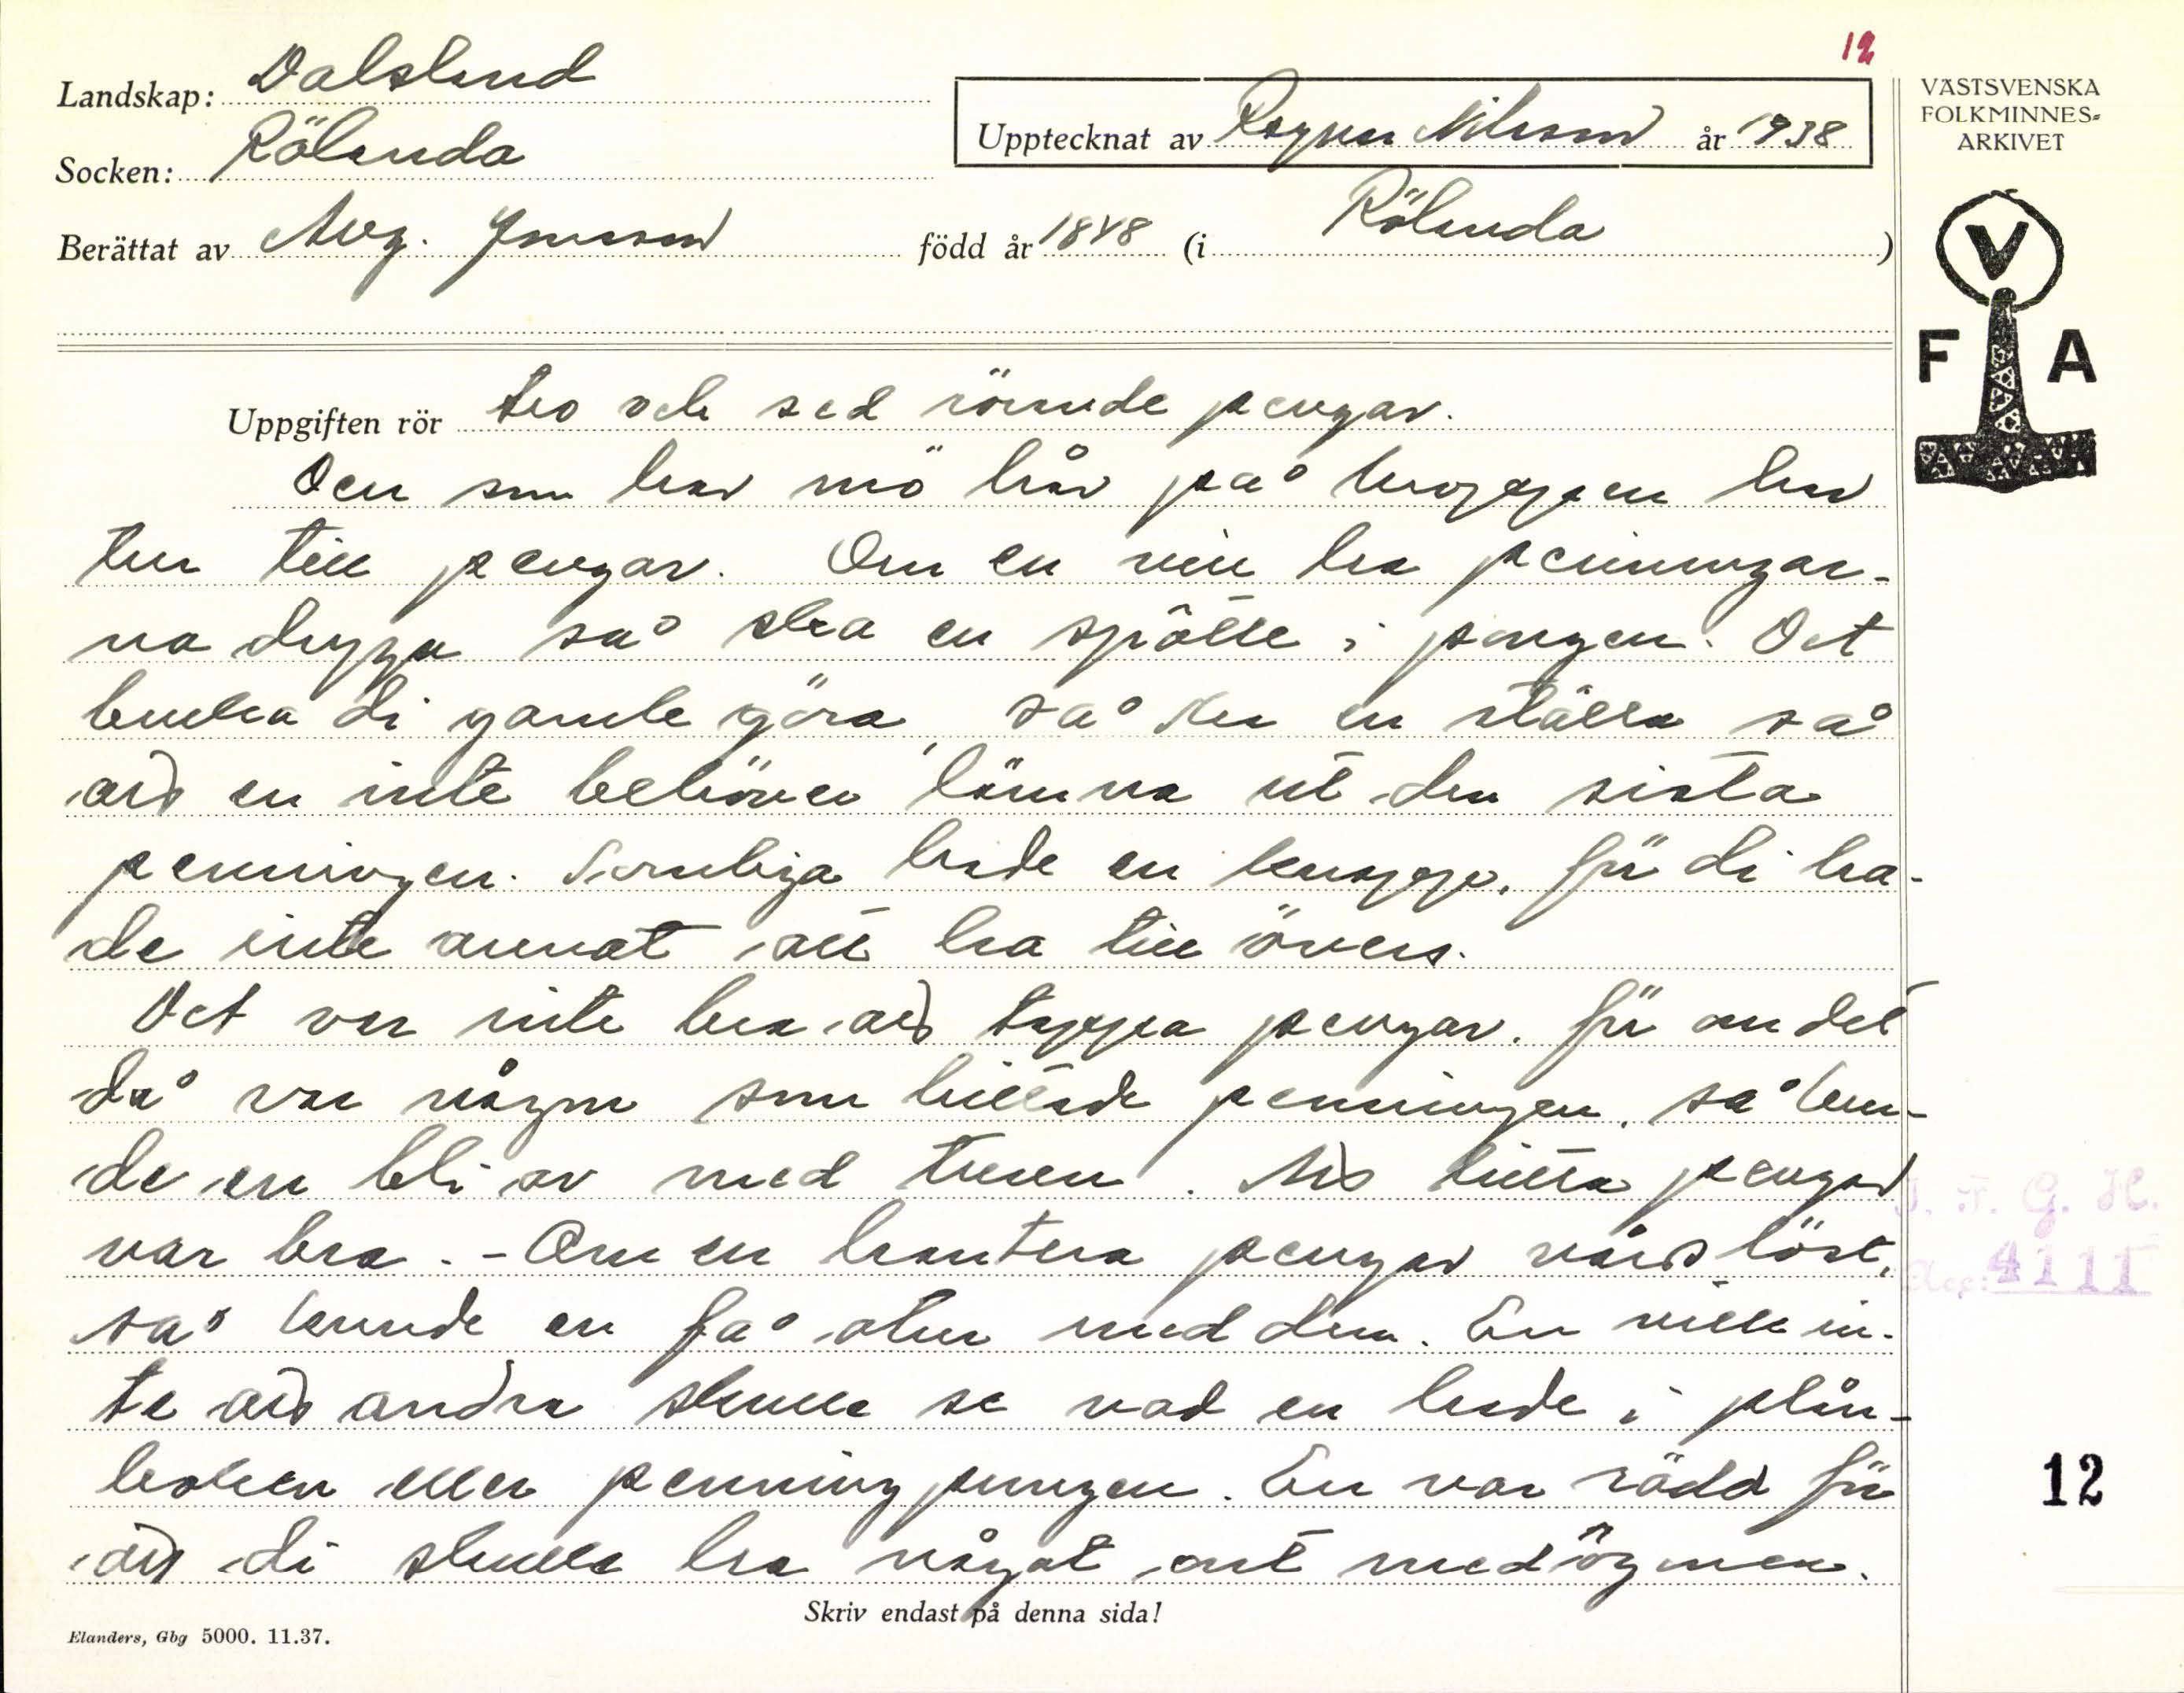 12
Landskap: Dalsland
Socken: Rölanda
Upptecknat av Ragnar Nilsson år 1938
Berättat av Aug. Jonsson född år 1848 (i Rölanda)
VÄSTSVENSKA
FOLKMINNES-
ARKIVET
V
F A
Uppgiften rör tro och sed rörande pengar.
Den som har mö hår på kroppen har
tur till pengar. Om en vill ha penningar-
na dryga så ska en spötte i pungen. Det
bruka di gamle göra, så ska en ställa så
att en inte behöver lämna ut den sista
penningen. Somliga hade en knapp, för di ha-
de inte annat att ha till övers.
Det var inte bra att tappa pengar, för om det
då var någon som hittade penningen, så kun-
de en bli av med turen. Att hitta pengar
var bra. - Om en hantera pengar vårdslöst,
så kunde en få otur med dem. En ville in-
te att andra skulle se vad en hade i plån-
boken eller penningpungen. En var rädd för
att di skulle ha något ont med ögnen.
I. F. G. H.
Acc: 4111
12
Skriv endast på denna sida!
Elanders, Gbg 5000. 11.37.